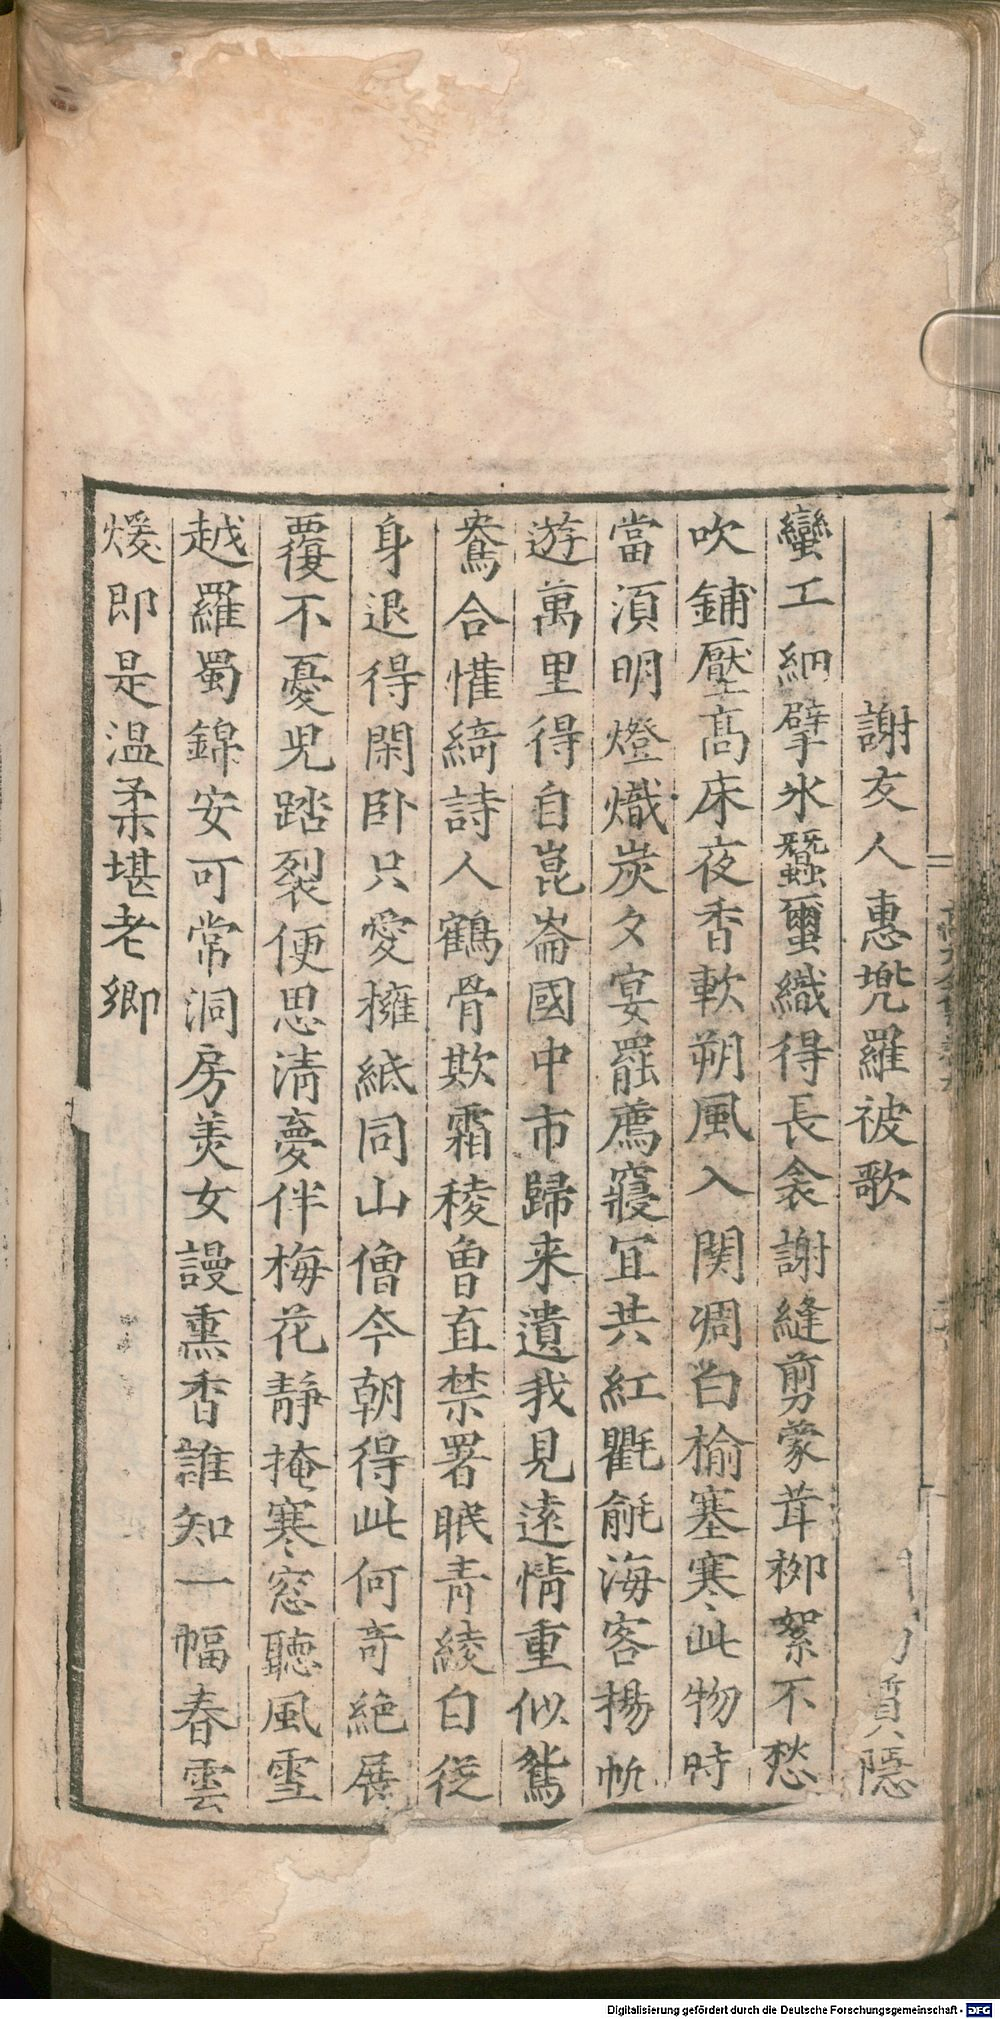 謝友人惠兠羅被歌
質隱
蠻工細擘氷蠶蠒織得長衾謝縫剪蒙茸栁絮不愁
吹鋪壓髙床夜香軟朔風入関凋白榆塞寒此物時
當湏明燈熾炭夕宴罷薦寢宜共紅氍毹海客揚帆
遊萬里得自崑崙國中市歸来遺我見遠情重似鴛
鴦合懽綺詩人鶴骨欺霜稜曾直禁署眠青綾自従
身退得閑卧只愛擁紙同山僧今朝得此何竒絶展
覆不憂児踏裂便思清夢伴梅花靜掩寒窓聽風雪
越羅蜀錦安可常洞房美女謾熏香誰知一幅春雲
煖即是温柔堪老鄉
Digitalisierung gefördert durch die Deutsche Forschungsgemeinschaft - DFG